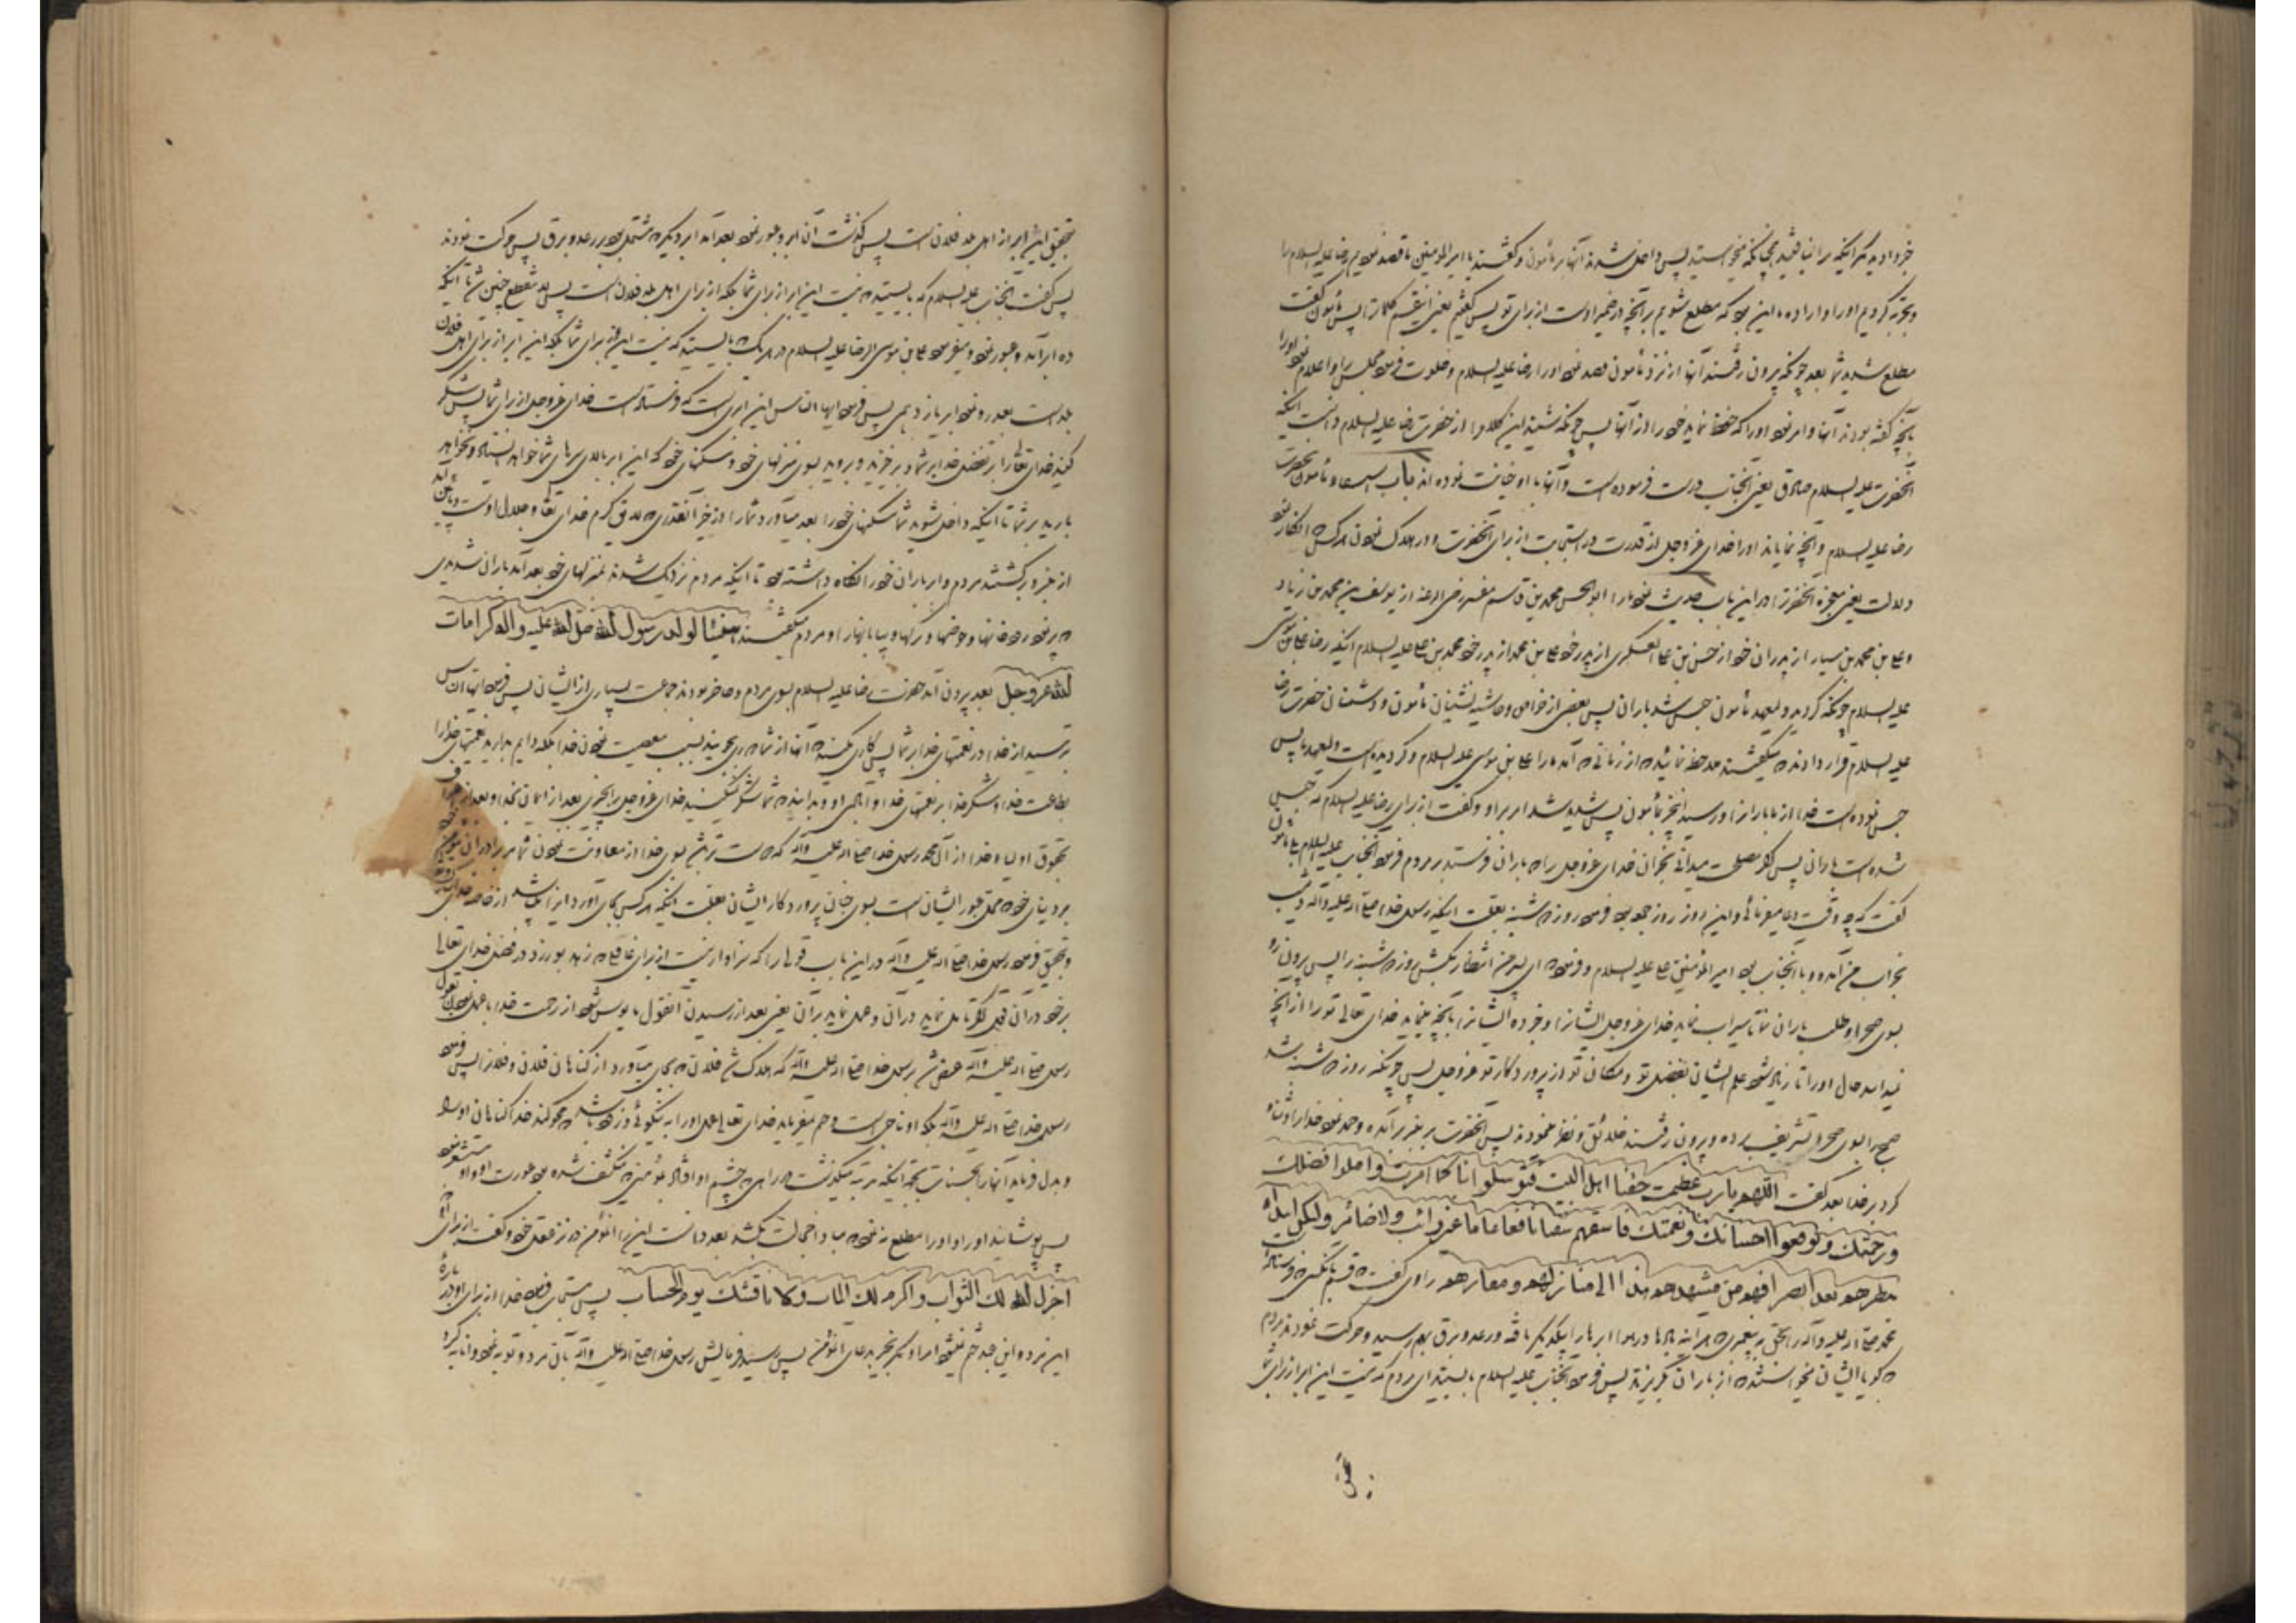 خبر دادید مگر اینکه میخواستید پس داخل شدند آنها بر مأمون و گفتند یا امیرالمؤمنین ما قصد نمودیم رضا علیه السلام را
و تجربه کردیم او را و اراده ما این بود که مطلع شویم بر آنچه در ضمیر اوست از برای تو پس گفتیم یعنی پس مأمون گفت
مطلع شدید شما بعد چونکه بیرون رفتند آنها از نزد مأمون قصد نمود او را رضا علیه السلام و خلوت فرمود مجلس را و اعلام نمود او را
بآنچه گفته بودند آنها و امر نمود او را که حفظ نماید خود را از آنها پس چونکه شنید این کلام را از حضرت رضا علیه السلام دانست اینکه
آنحضرت علیه السلام صادق یعنی آنجناب درست فرموده است و آنها با او خیانت نموده اند باب
رضا علیه السلام و آنچه نمایاند او را خدای عز و جل از قدرت در استجابت از برای آنحضرت و در هلاک نمودن هر کس که انکار نمود
دلالت یعنی معجزه آنحضرت را در این باب حدیث نمود ما را ابوالحسن محمد بن قاسم مفسر رضی الله عنه از یوسف بن محمد بن زیاد
و علی بن محمد بن سیار از پدران خود از حسن بن علی العسکری از پدر خود علی بن محمد از پدر خود محمد بن علی علیه السلام اینکه رضا علی بن موسی
علیه السلام چونکه گردید ولیعهد مأمون حبس شد باران پس بعضی از خواص و حاشیه نشینان مأمون و دشمنان حضرت رضا
علیه السلام قرار دادند که میگفتند ملاحظه نمائید که از زمانی که آمد ما را علی بن موسی علیه السلام و گردیده است ولیعهد ما پس
حبس نموده است خدا از ما باران را و رسید این خبر بمأمون پس شدید شد امر بر او و گفت از برای رضا علیه السلام که حبس
شده است باران پس اگر مصلحت میدانی بخوان خدای عز و جل را که باران فرستد بر مردم فرمود آنجناب علیه السلام بلی مأمون
گفت که چه وقت دعا میفرمائی و این روز روز جمعه بود فرمود روز دوشنبه بعلت اینکه رسول خدا صلی الله علیه و آله دیشب
بخواب من آمد و با آنجناب بود امیرالمؤمنین علی علیه السلام و فرمود که ای پسر من انتظار بکش روز دوشنبه را پس بیرون رو
بسوی صحرا و طلب باران نما تا سیراب نماید خدای عز و جل ایشان را و خبر ده ایشان را بآنچه مینماید خدای تعالی تو را از آنچه
نمیدانند حال او را تا زیاد شود علم ایشان بفضل تو و مکان تو از پروردگار تو عز و جل پس چونکه روز دوشنبه شد
صبح را بسوی صحرا تشریف برده و بیرون رفتند خلائق و نظر نمودند پس آنحضرت بر منبر آمده و حمد نمود خدا را و ثنا
کرد بر خدا بعد گفت اللهم یا رب عظمت حقنا اهل البیت فتوسلوا بنا کما امرت و املوا فضلک
و رحمتک و توقعوا احسانک و نعمتک فاسقهم سقیا نافعا عاما غیر رائث و لا ضائر و لیکن ابتداء
مطرهم بعد انصرافهم من مشهدهم هذا الی منازلهم و مقارهم راوی گفت که قسم بآنکسی که فرستاد
محمد صلی الله علیه و آله را بحق به پیغمبری که هرآینه بادها در هوا ابرها را بیکدیگر بافته و رعد و برق بهم رسید و حرکت نمودند مردم
که گویا ایشان میخواستند که از باران بگریزند پس فرمود آنجناب علیه السلام بایستید ای مردم که نیست این ابر از برای شما
تحقیق این ابر از اهل بلد فلان است پس گذشت آن ابر و عبور نمود بعد آمد ابر دیگر که مشتمل بود بر رعد و برق پس حرکت نمودند
پس گفت آنجناب علیه السلام که بایستید که نیست این ابر از برای شما بلکه از برای اهل بلد فلان است پس چنین شد تا آنکه
ده ابر آمد و عبور نمود و میفرمود علی بن موسی الرضا علیه السلام در هر یک که بایستید که نیست این ابر برای شما بلکه این ابر از برای اهل فلان
بلد است بعد رو نمود ابر یازدهمی پس فرمود ایها الناس این ابری است که فرستاده است خدای عز و جل از برای شما پس شکر
کنید خدای تعالی را بر تفضل خدا بر شما و برخیزید و بروید بسوی منزلهای خود و مسکنهای خود که این ابر بالای سرهای شما خواهد ایستاد و نخواهد
بارید بر شما تا اینکه داخل شوید شما مسکنهای خود را بعد میآورد شما را از خیر آنقدری که لایق کرم خدای تعالی و جلال اوست و پائین آمد
از منبر و برگشتند مردم و ابر باران خود را نگاه داشته بود تا اینکه مردم نزدیک شدند بمنزلهای خود بعد آمد باران شدیدی
که پر نمود رودخانها و حوضها و گودالها و بیابانها را و مردم میگفتند هنیئا لولد رسول الله صلی الله علیه و آله کرامات
الله عز و جل بعد بیرون آمد حضرت رضا علیه السلام بسوی مردم و حاضر بودند جماعت بسیاری از ایشان پس فرمود ایها الناس
بترسید از خدا در نعمتهای خدا بر شما پس کاری نکنید که آنها از شما دوری جویند بسبب معصیت نمودن خدا بلکه دایم بدارید نعمتهای خدا را
بطاعت خدا و شکر خدا بر نعمتهای خدا و بدانید که شما شکر نمیکنید خدای عز و جل را بچیزی بعد از ایمان بخدا و بعد از اعتراف
بحقوق اولیاء خدا از آل محمد رسول خدا صلی الله علیه و آله که دوست تر باشد بسوی خدا از معاونت نمودن شما مر برادران مؤمن خود
بر دنیای خود که محل عبور ایشان است بسوی جنان پروردگار ایشان بعلت اینکه هر کس بجای آورد این را باشد از خاصه خدای
و تحقیق فرمود رسول خدا صلی الله علیه و آله در این باب قولی را که سزاوار نیست از برای عاقل که زهد بورزد در فضل خدای تعالی
بر خود در آن قول اگر تأمل نماید در آن و عمل نماید بر آن
رسول صلی الله علیه و آله عرض شد برسول خدا صلی الله علیه و آله که هلاک شد فلان که بجای میآورد از گناهان فلان و فلان را پس فرمود
رسول خدا صلی الله علیه و آله بلکه او ناجی است و ختم میفرماید خدای تعالی عمل او را به نیکوئی و زود باشد که محو کند خدا گناهان او را
و بدل فرماید آنها را بحسنات بجهة اینکه مرتبه میگذشت در راهی که چشم او افتاد بمؤمنی که منکشف شده بود عورت او و او مستشعر نبود
پس پوشانید او را و او را مطلع ننمود که مبادا خجالت بکشد بعد دانست این را آن مؤمن و گفت از برای او
اجزل الله لک الثواب و اکرم لک المآب و لا ناقشک یوم الحساب پس مستجاب فرمود خدا از برای او در باره
این مرد و این بنده ختم نمیشود امر او مگر بخیر بدعای آن مؤمن پس رسید فرمایش رسول خدا صلی الله علیه و آله بآن مرد و توبه نمود و انابه کرد